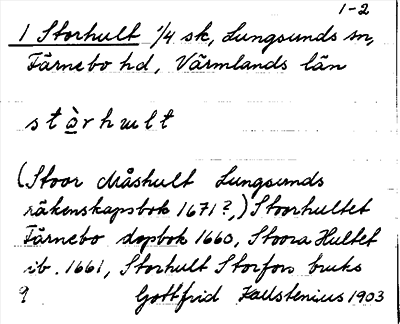 1-2
1 Storhult 1/4 sk, Lungsunds sn,
Färnebo hd, Värmlands län
stàrhult
(Stoor Måshult Lungsunds
räkenskapsbok 1671?,) Stoorhultet
Färnebo dopbok 1660, Stoora Hultet
ib. 1661, Storhult Storfors bruks
9 Gottfrid Kallstenius 1903